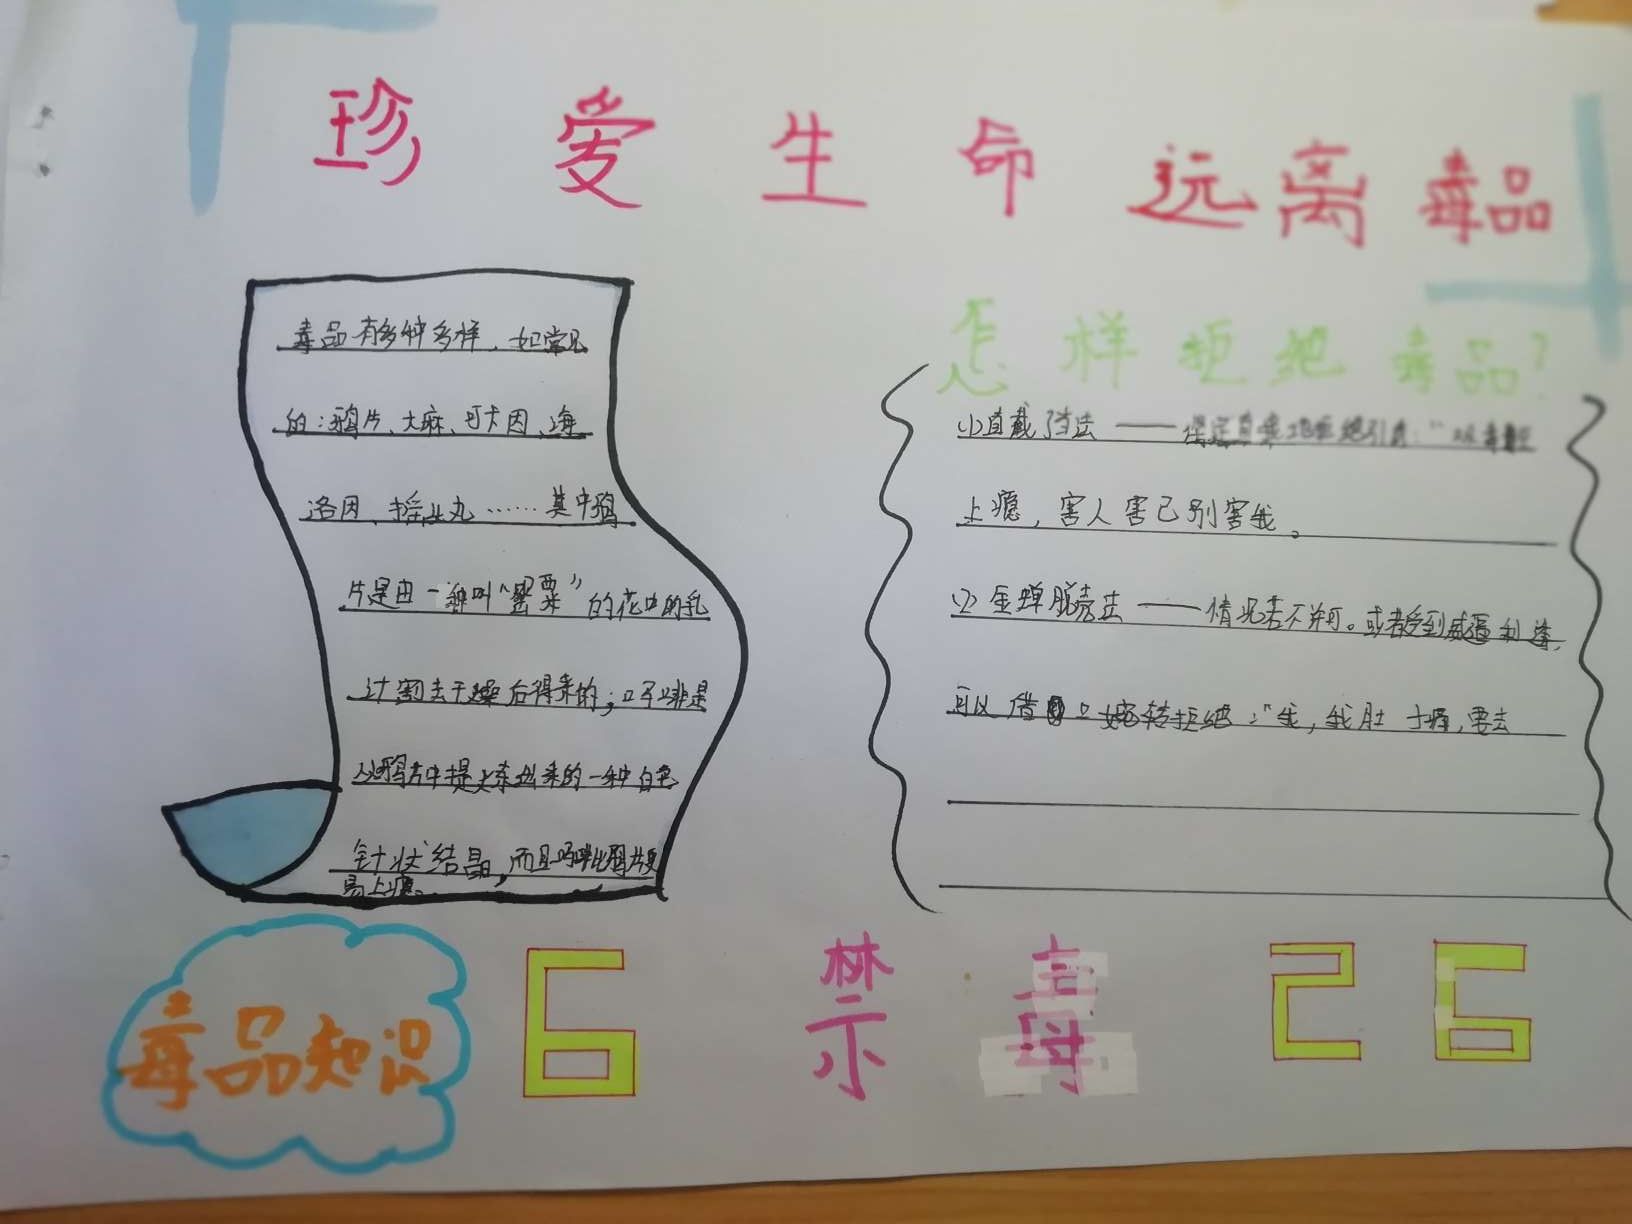 珍爱生命远离毒品
毒品有多种多样，如常见
的：鸦片、大麻、可卡因、海
洛因、摇头丸……其中鸦
片是由一种叫“罂粟”的花中的乳
汁割去干燥后得来的；吗啡是
从鸦片中提炼出来的一种白色
针状结晶，而且吗啡比鸦片更
易上瘾。
怎样拒绝毒品？
(1)直截了当法——坚定直接地拒绝引诱：“吸毒
上瘾，害人害己别害我。
(2)金蝉脱壳法——情况若不许可。或者受到威逼利诱，
可以借口婉转拒绝：“我，我肚子痛，要去
毒品知识
6 禁毒 26